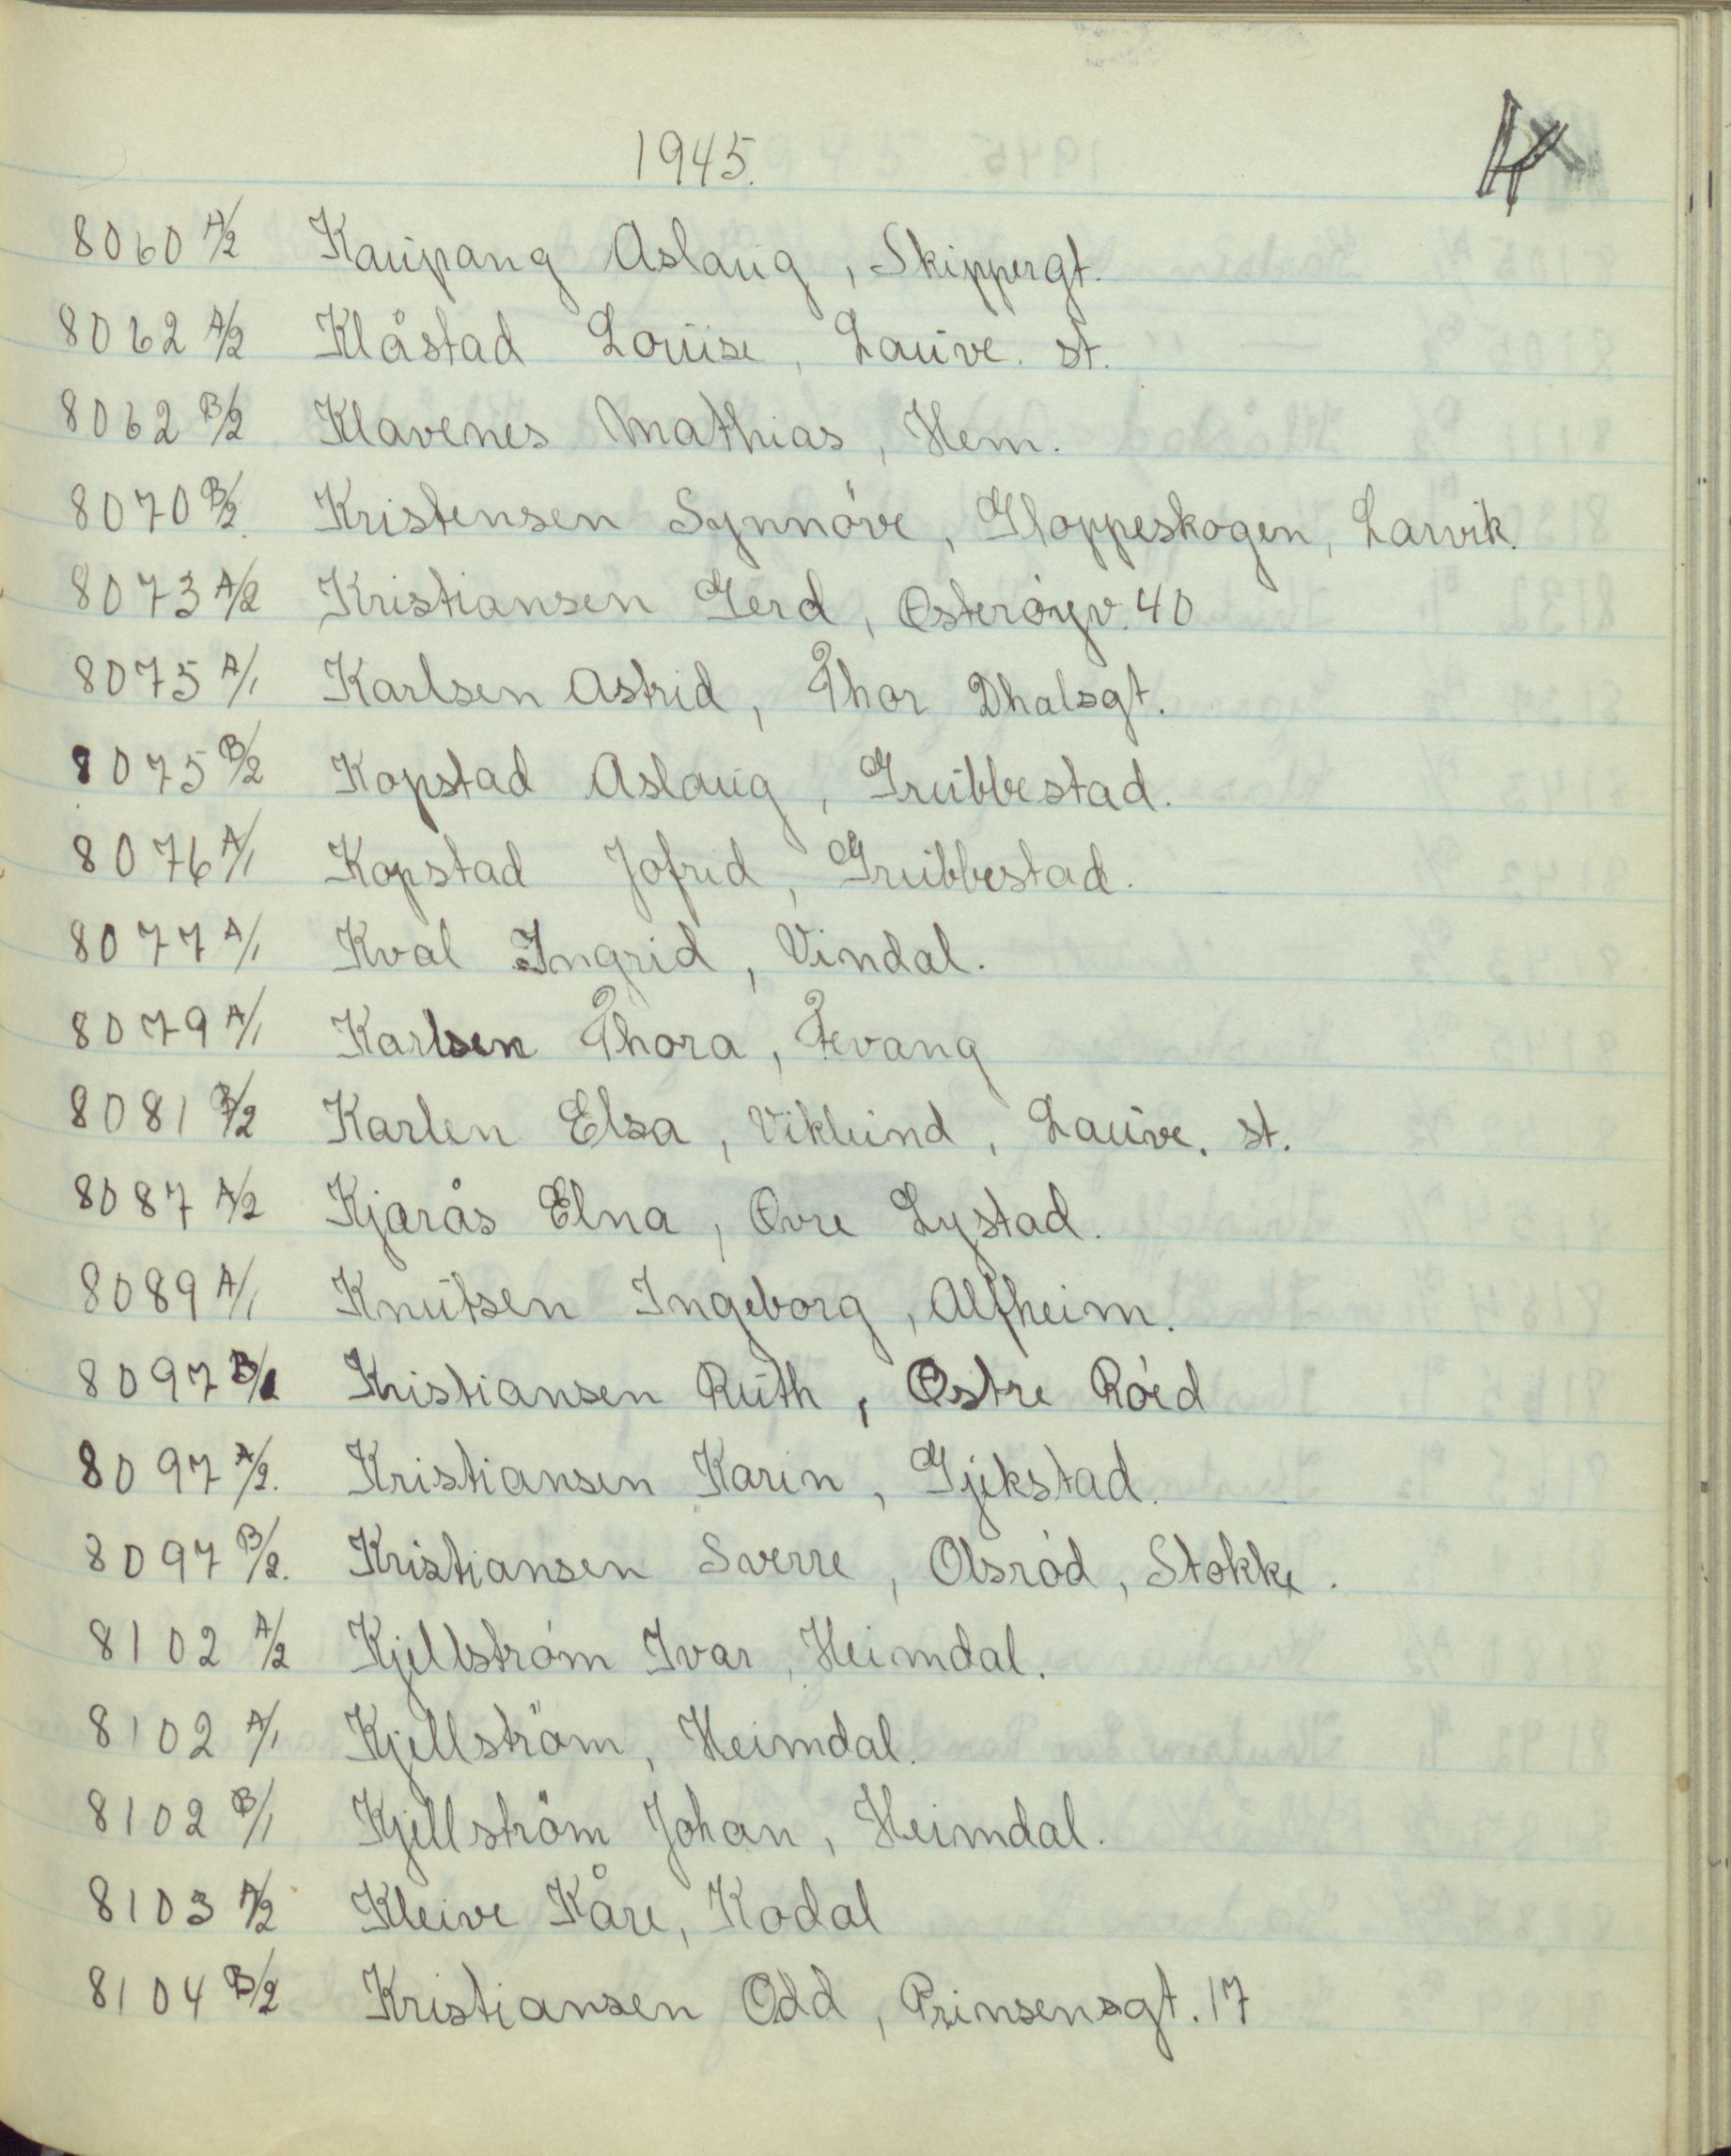 1945.
8060 A/2 Kaupang Aslaug, Skippergt.
8062 A/2 Klåstad Louise, Lauve. st.
8062 B/2 Klavenes Mathias, Hem.
8070 B/2. Kristensen Synnöve, Gloppeskogen, Larvik.
8073 A/2 Kristiansen Gerd, Østeröyv. 40
8075 A/1 Karlsen Astrid, Thor Dhalsgt.
8075 B/2 Kopstad Aslaug, Grubbestad.
8076 A/1 Kopstad Jofrid, Grubbestad.
8077 A/1 Kval Ingrid, Vindal.
8079 A/1 Karlsen Thora, Fevang
8081 B/2 Karlen Elsa, Viklund, Lauve. st.
8087 A/2 Kjærås Elna, Øvre Lystad.
8089 A/1 Knutsen Ingeborg, Alfheim.
8097 B/1 Kristiansen Ruth, Østre Röed
8097 A/2. Kristiansen Karin, Gjekstad.
8097 B/2. Kristiansen Sverre, Olsröd, Stokke.
8102 A/2 Kjellström Ivar, Heimdal.
8102 A/1 Kjellström, Heimdal.
8102 B/1 Kjellström Johan, Heimdal.
8103 A/2 Kleive Kåre, Kodal
8104 B/2 Kristiansen Odd, Prinsensgt. 17